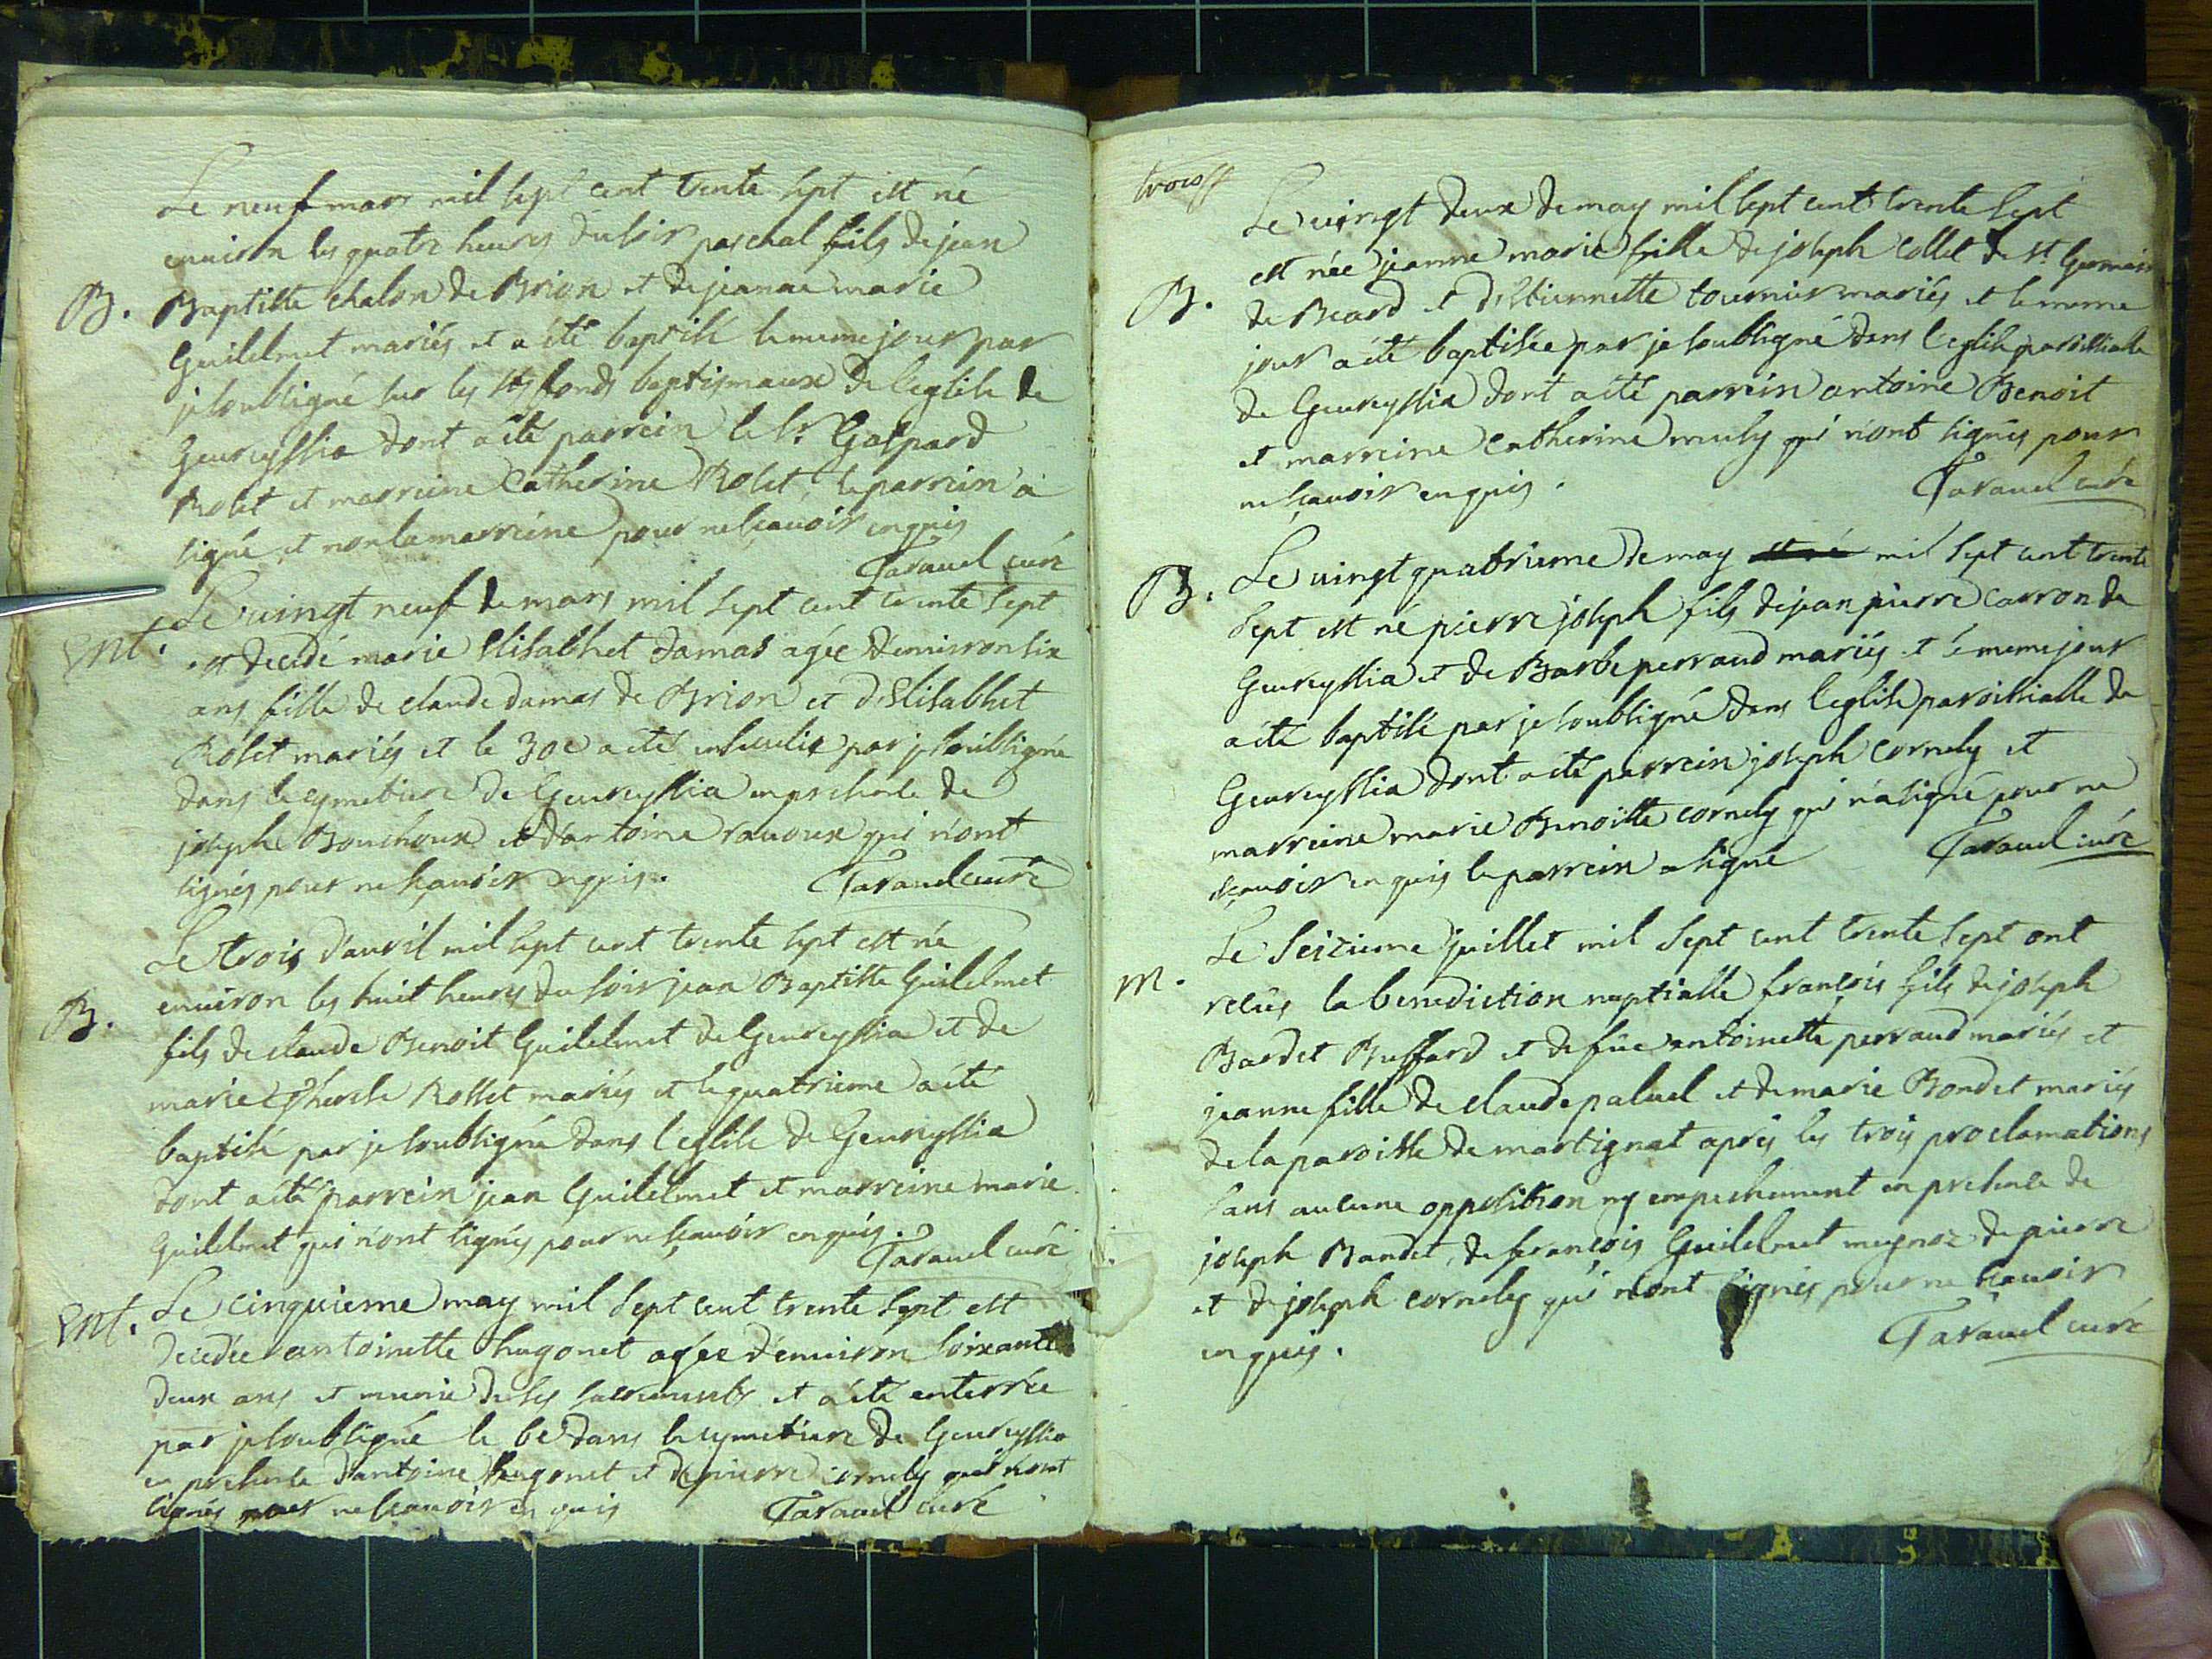 Le neuf mars mil sept cent trente sept est né
environ les quatre heures du soir paschal fils de jean
B. Baptiste chalon de Brion et de jeanne marie
Guilelmet mariés et a été baptisé le meme jour par
je soubsigné sur les sts fonds baptismaux de l'eglise de
Geureyssia dont a été parrein le Sr Gaspard
Rolet et marreine Catherine Rolet, le parrein a
signé et non la marreine pour ne sçavoir enquis
Taravel curé
Ent. Le vingt neuf de mars mil sept cent trente sept
est decedé marie Elisabhet damas agée d'environ six
ans fille de claude damas de Brion et d'Elisabhet
Rolet mariés et le 30e a été ensevelie par je soubsigné
dans le cymetiere de Geureyssia en presence de
joseph Bouchoux et d'antoine ravoux qui n'ont
signés pour ne sçavoir enquis. Taravel curé
Le trois d'avril mil sept cent trente sept est né
B. environ les huit heures du soir jean Baptiste Guilelmet
fils de claude Benoit Guilelmet de Geureyssia et de
marie Therese Rollet mariés et le quatrieme a été
baptisé par je soubsigné dans l'eglise de Geureyssia
dont a été parrein jean Guilelmet et marreine marie
Guilelmet qui n'ont signés pour ne sçavoir enquis.
Taravel curé
Ent. Le cinquieme may mil sept cent trente sept est
decedée antoinette hugonet agée d'environ soixante
deux ans et munie de ses sacrements et a été enterrée
par je soubsigné le 6e dans le cymetiere de Geureyssia
en presence d'antoine hugonet et de pierre cornely qui n'ont
signés pour ne sçavoir enquis Taravel curé
trois
Le vingt deux de may mil sept cent trente sept
est née jeanne marie fille de joseph collet de st Germain
B. de Beard et d'Estiennette tournier mariés et le meme
jour a été baptisée par je soubsigné dans l'eglise paroissialle
de Geureyssia dont a été parrein antoine Benoit
et marreine Catherine muly qui n'ont signés pour
ne sçavoir enquis. Taravel curé
B. Le vingt quatrieme de may est né mil sept cent trente
sept est né pierre joseph fils de jean pierre Carron de
Geureyssia et de Barbe perraud mariés et le meme jour
a été baptisé par je soubsigné dans l'eglise paroissialle de
Geureyssia dont a été parrein joseph cornely et
marreine marie Benoitte cornely qui n'a signé pour ne
sçavoir enquis le parrein a signé Taravel curé
Le seizieme juillet mil sept cent trente sept ont
m. recus la benediction nuptialle françois fils de joseph
Bardet Buffard et de füe antoinette perraud mariés et
jeanne fille de claude paluel et de marie Bondet mariés
de la paroisse de martignat après les trois proclamations
sans aucune opposition ny empechement en presence de
joseph Bandet, de françois Guilelmet de pierre
et de joseph cornely qui n'ont signés pour ne sçavoir
enquis. Taravel curé